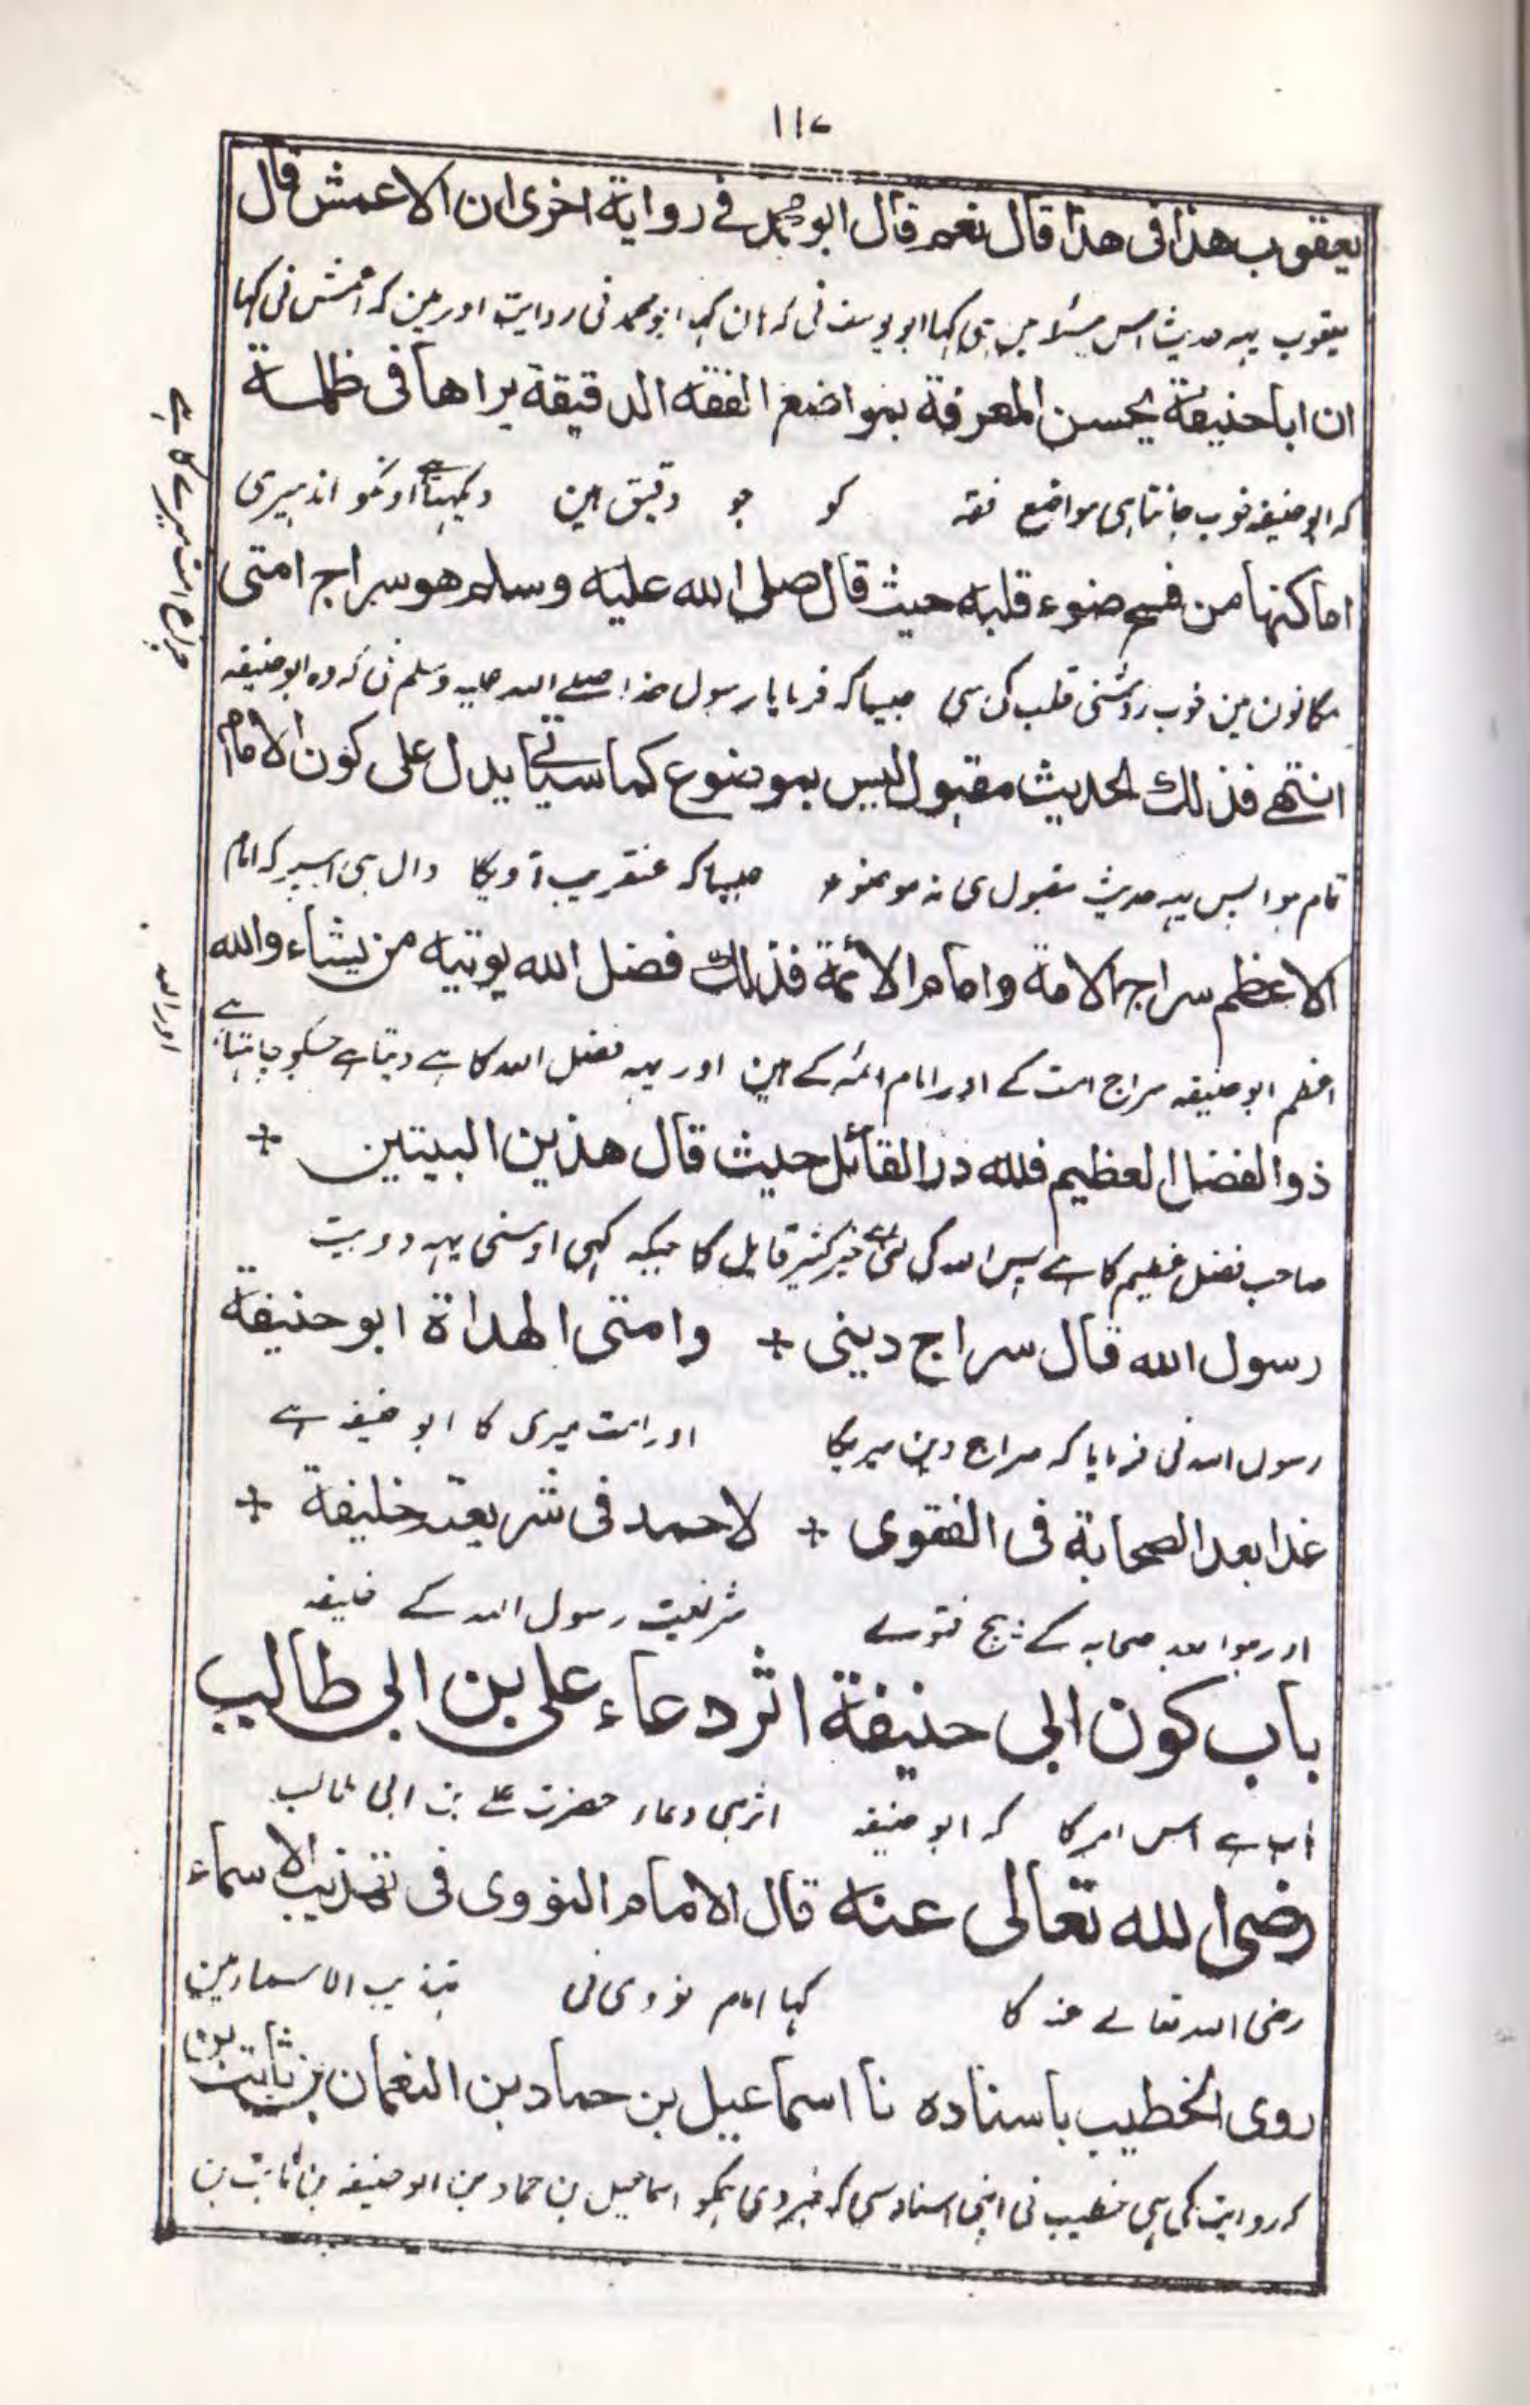 ۱۱۷
يعقوب هذا فى هذا قال نعم قال ابو محمد فے رواية اخرى ان الاعمش قال
یعقوب یہہ حدیث اس مسئلا مین ہی کہا ابو یوسف نی کہ ہان کہا ابو محمد نی روایت اور مین کہ اعمش نی کہا
ان اباحنيفة يحسن المعرفة بمواضع الفقه الدقيقة يراها فى ظلمة
کہ ابو حنیفہ خوب جانتا ہی مواضع فقہ کو جو دقیق ہین دیکہتا ہے اونکو اندہیری
اماكنها من فسح ضوء قلبه حيث قال صلى الله عليه وسلم هو سراج امتى
مکانون مین خوب روشنی قلب کی سی جیسا کہ فرمایا رسول خدا صلے اللہ علیہ وسلم نی کہ وہ ابو حنیفہ
چراغ امت میرے کا ہے
انتهے فذلك الحديث مقبول ليس بموضوع كما سياتے يدل على كون الامام
تمام ہوا پس یہہ حدیث مقبول ہی نہ موضوع جیسا کہ عنقریب آویگا دال ہی اسپر کہ امام
الاعظم سراج الامة وامام الائمة فذلك فضل الله يوتيه من يشاء والله
اعظم ابو حنیفہ سراج امت کے اور امام ائمہ کے ہین اور یہہ فضل اللہ کا ہے دیتا ہے جسکو چاہتا ہے
اور اللہ
ذو الفضل العظيم فلله در القائل حيث قال هذين البيتين +
صاحب فضل عظیم کا ہے پس اللہ کی لئی ہے خیر کثیر قایل کا جبکہ کہی اوسنی یہہ دو بیت
رسول الله قال سراج دينى + وامتى الهداة ابو حنيفة
رسول اللہ نی فرمایا کہ سراج دین میریکا اور امت میری کا ابو حنیفہ ہے
غدا بعد الصحابة فى الفتوى + لاحمد فى شريعته خليفة +
اور ہوا بعد صحابہ کے بیچ فتوے شریعت رسول اللہ کے خلیفہ
باب كون ابى حنيفة اثر دعاء على بن ابى طالب
باب ہے اس امر کا کہ ابو حنیفہ اثر ہی دعاء حضرت علے بن ابی طالب
رضى الله تعالى عنه قال الامام النووى فى تهذيب الاسماء
رضی اللہ تعالے عنہ کا کہا امام نووی نی تہذیب الاسماء مین
روى الخطيب باسناده نا اسماعيل بن حماد بن النعمان بن ثابت بن
کہ روایت کی ہی خطیب نی اپنی اسناد سی کہ خبر دی ہمکو اسماعیل بن حماد بن ابو حنیفہ بن ثابت بن